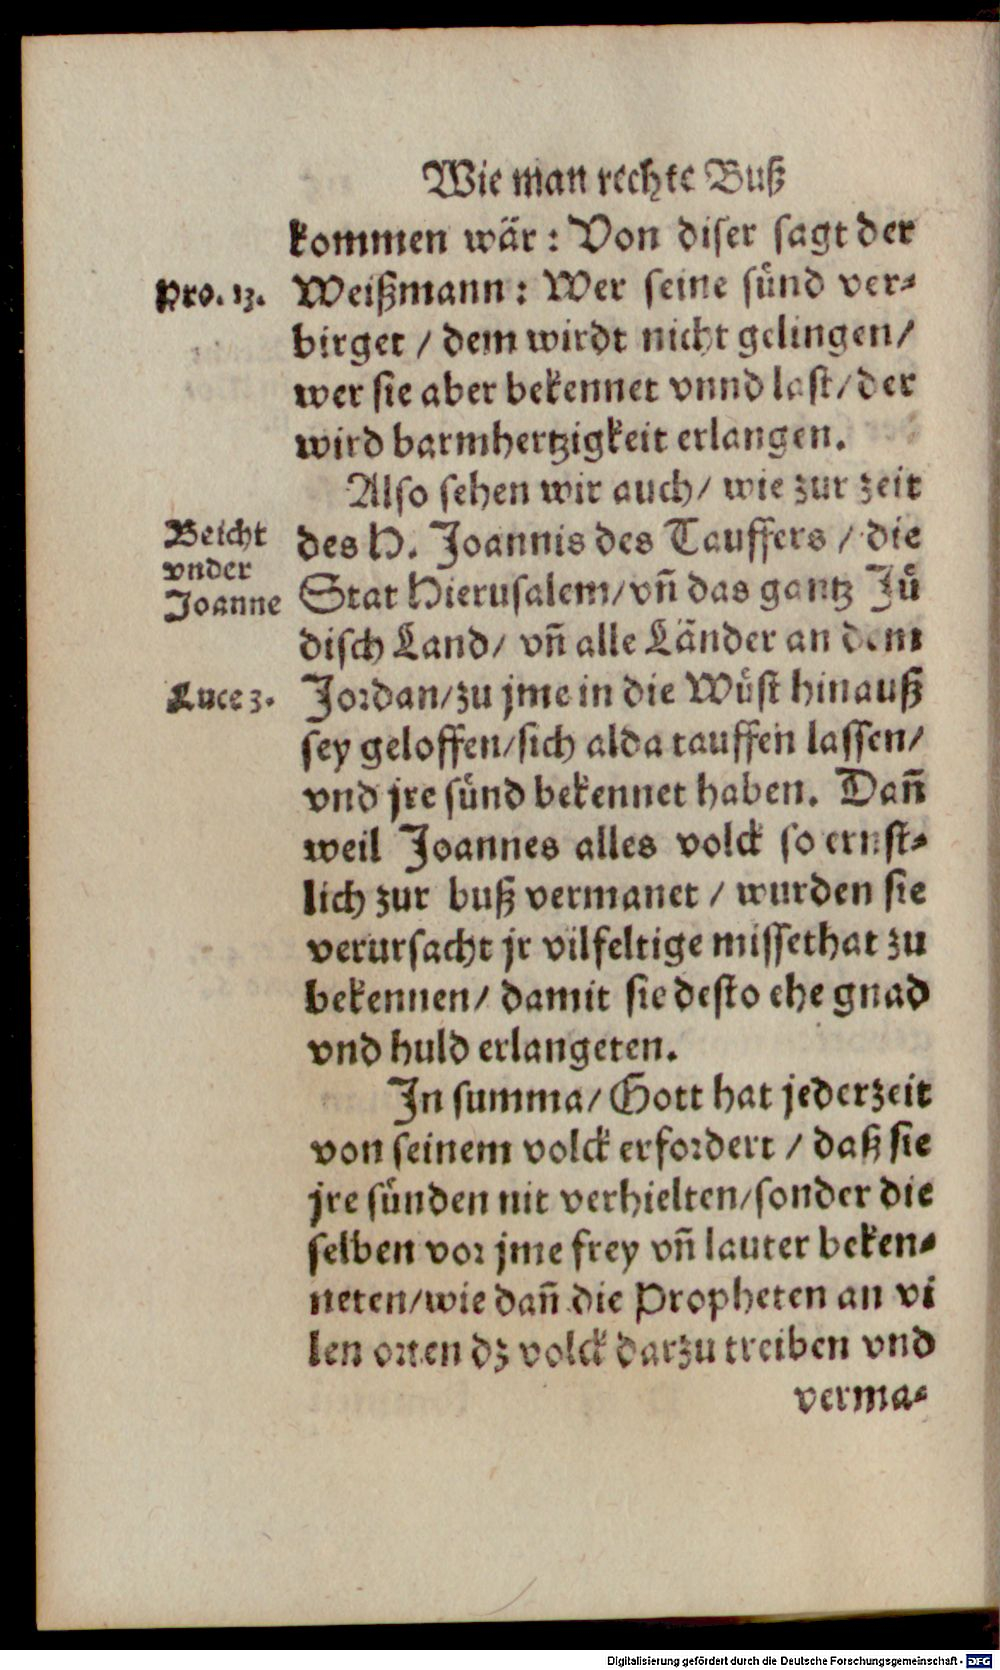 Wie man rechte Buß
kommen wär: Von diser sagt der
Pro. 13.
Weißmann: Wer seine sünd ver⸗
birget / dem wirdt nicht gelingen /
wer sie aber bekennet vnnd last / der
wird barmhertzigkeit erlangen.
Also sehen wir auch / wie zur zeit
Beicht
vnder
Joanne
des H. Joannis des Tauffers / die
Stat Hierusalem / vñ das gantz Jü
disch Land / vñ alle Länder an dem
Luce 3.
Jordan / zu jme in die Wüst hinauß
sey geloffen / sich alda tauffen lassen /
vnd jre sünd bekennet haben. Dañ
weil Joannes alles volck so ernst⸗
lich zur buß vermanet / wurden sie
verursacht jr vilfeltige missethat zu
bekennen / damit sie desto ehe gnad
vnd huld erlangeten.
In summa / Gott hat jederzeit
von seinem volck erfordert / daß sie
jre sünden nit verhielten / sonder die
selben vor jme frey vñ lauter beken⸗
neten / wie dañ die Propheten an vi
len orten dz volck darzu treiben vnd
verma⸗
Digitalisierung gefördert durch die Deutsche Forschungsgemeinschaft - DFG